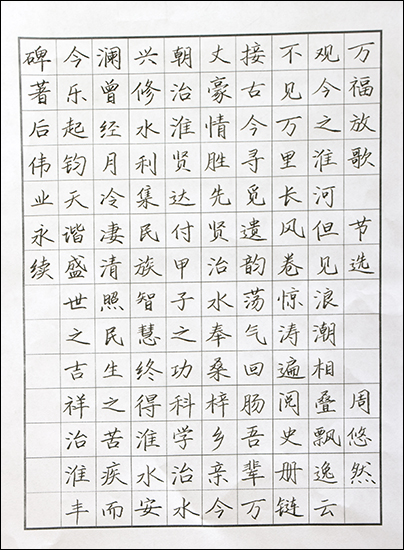 万福放歌 节选 周悠然
观今之淮河但见浪潮相叠飘逸云
不见万里长风卷惊涛遍阅史册链
接古今寻觅遗韵荡气回肠吾辈万
丈豪情胜先贤治水奉桑梓乡亲今
朝治淮贤达付甲子之功科学治水
兴修水利集民族智慧终得淮水安
澜曾经月冷凄清照民生之苦疾而
今乐起钧天谐盛世之吉祥治淮丰
碑著后伟业永续